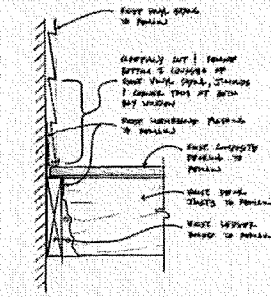 EXIST VINYL SIDING
TO REMAIN
CAREFULLY CUT & REMOVE
BOTTOM 2 COURSES OF
EXIST VINYL SIDING,
& CORNER TRIM AT BOTH
BAY WINDOW
EXIST
TO REMAIN
EXIST COMPOSITE
DECKING TO
REMAIN
EXIST DECK
JOISTS TO REMAIN
EXIST LEDGER
BOARD TO REMAIN